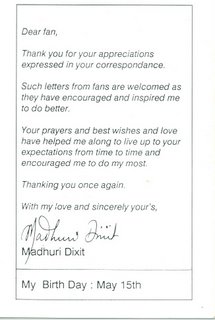 Dear fan,
Thank you for your appreciations
expressed in your correspondance.
Such letters from fans are welcomed as
they have encouraged and inspired me
to do better.
Your prayers and best wishes and love
have helped me along to live up to your
expectations from time to time and
encouraged me to do my most.
Thanking you once again.
With my love and sincerely your's,
Madhuri Dixit
Madhuri Dixit
My Birth Day : May 15th